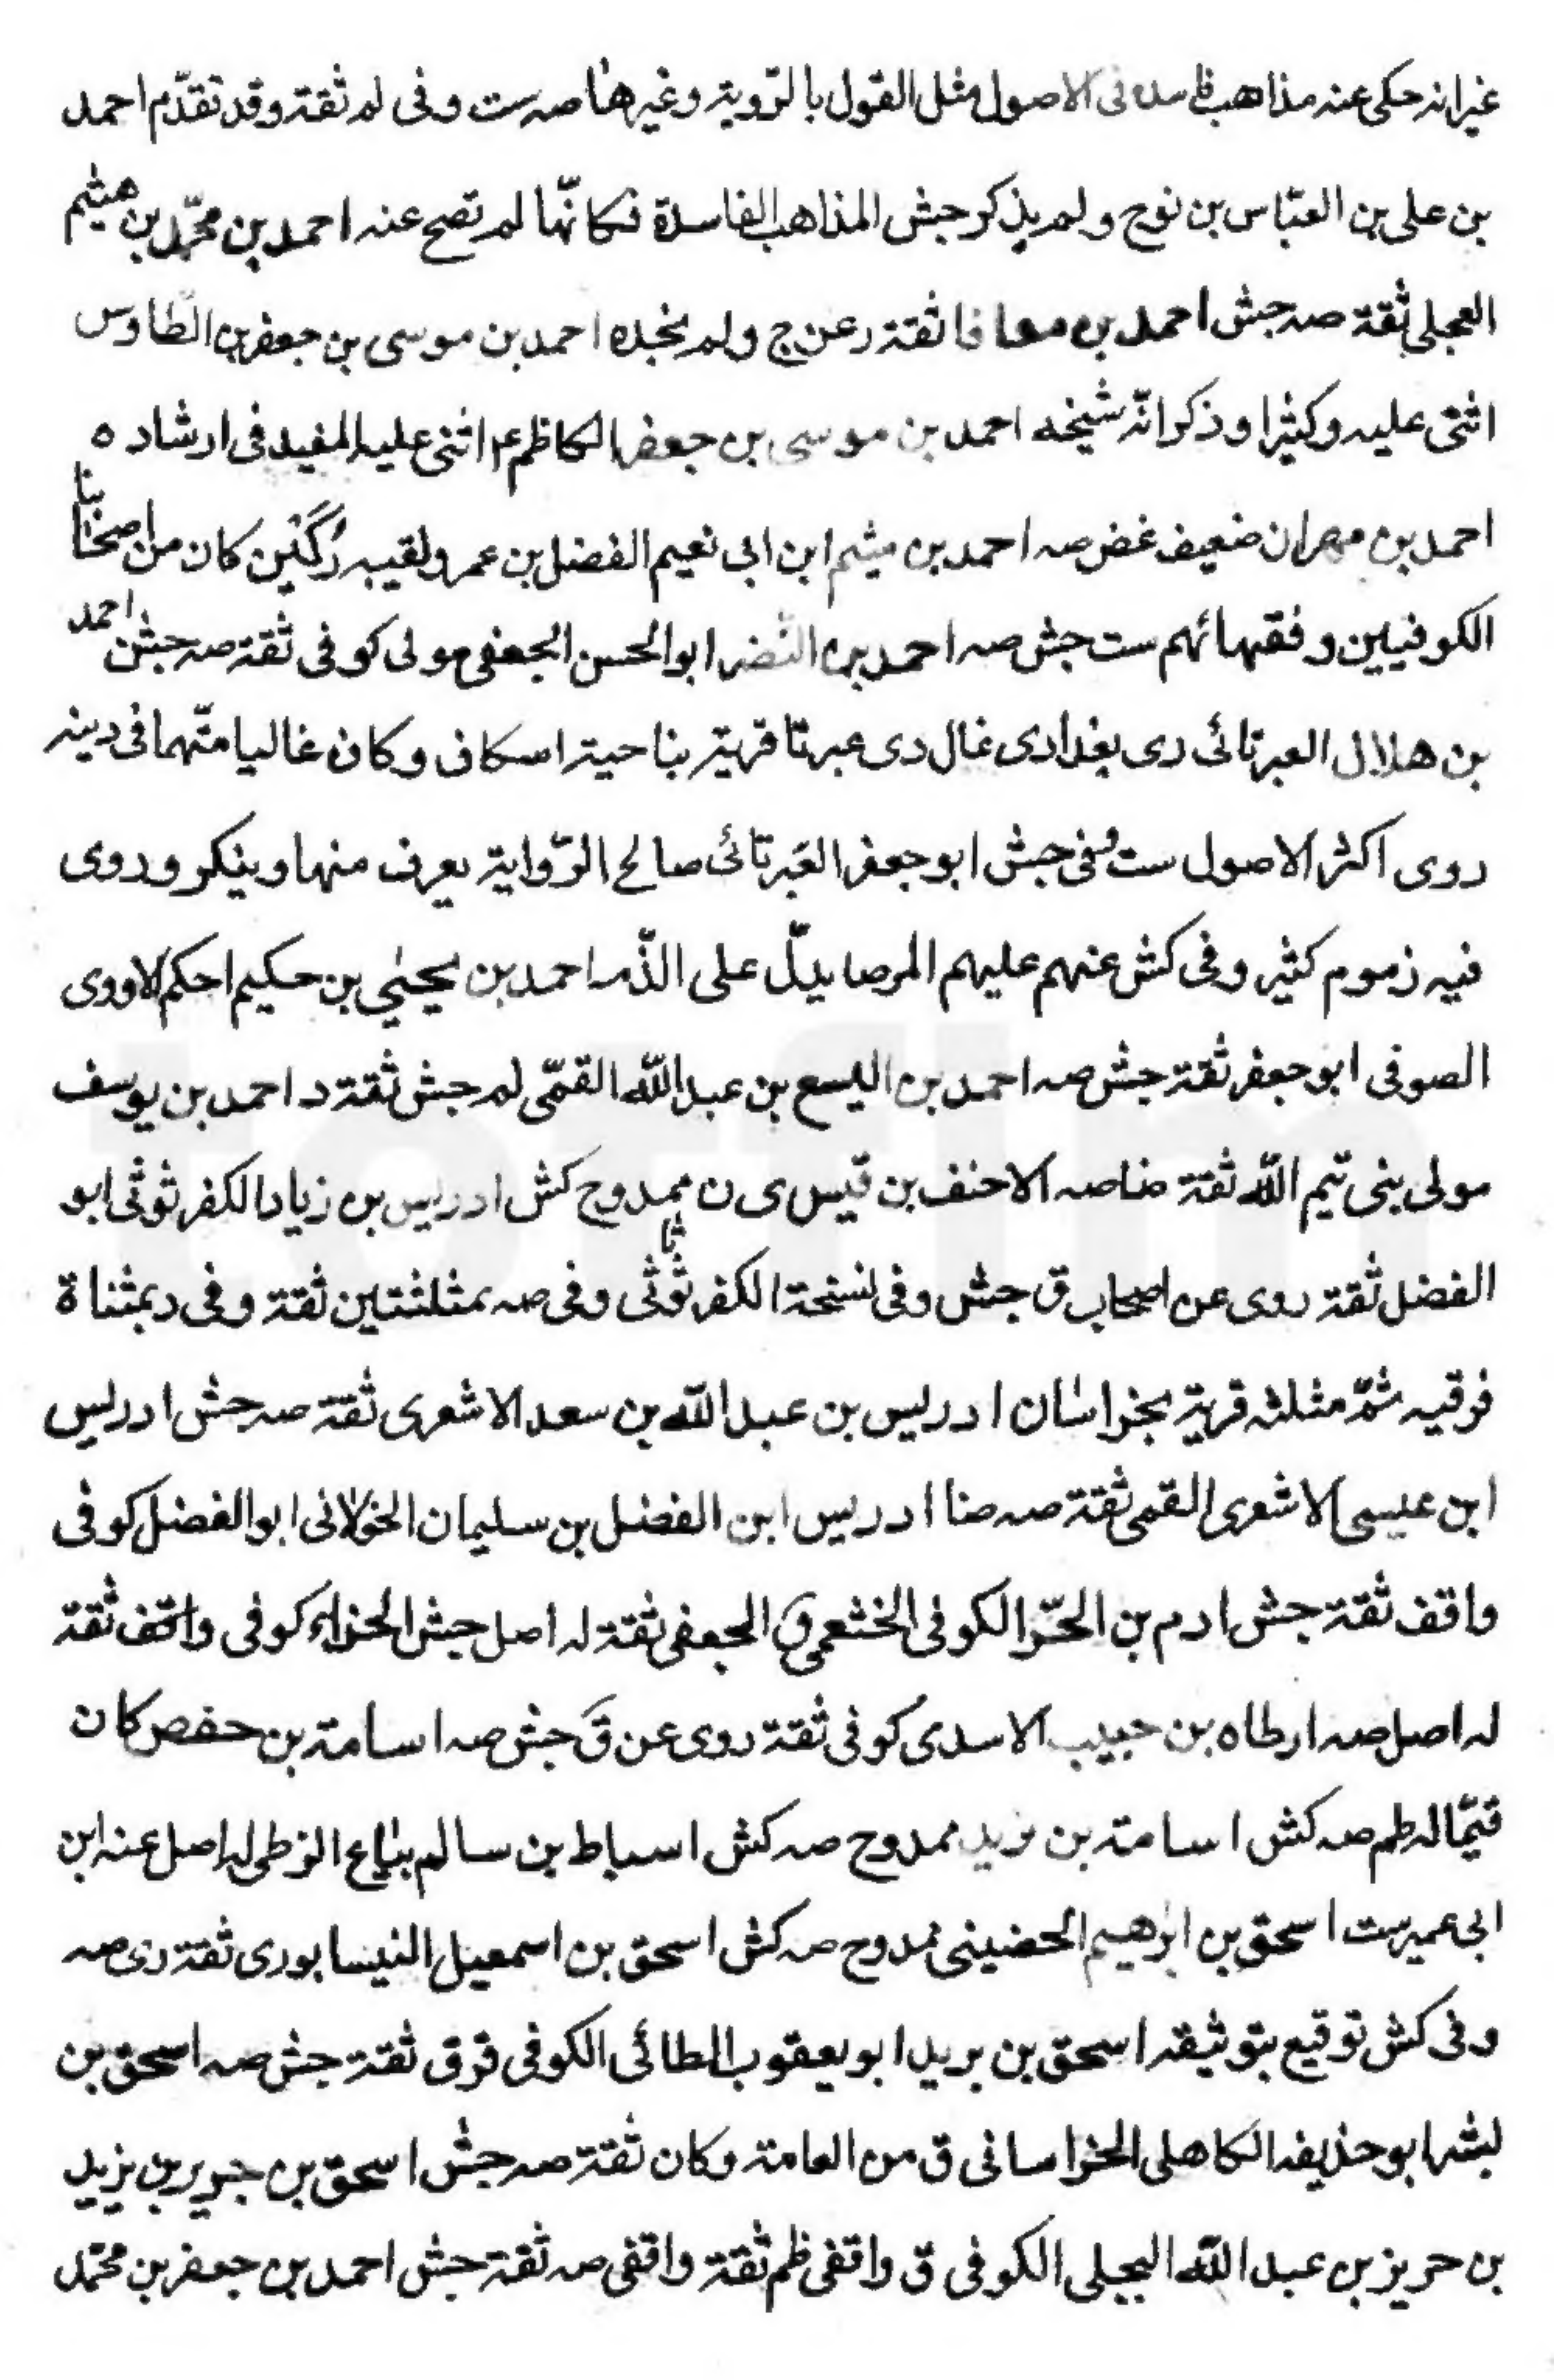 غير انه حكى عنه مذاهب فاسدة فى الاصول مثل القول بالرّوية وغيرها صه ست وفى لم ثقة وقد تقدّم احمد
بن على بن العبّاس بن نوح ولم يذكر جش المذاهب الفاسدة فكانّها لم تصح عنه احمد بن محمّد بن هيثم
العجلى ثقة صه جش احمد بن معافا ثقة د عن ج ولم نجده احمد بن موسى بن جعفر بن الطاوس
اثنى عليه د كثيرا وذكر انّه شيخه احمد بن موسى بن جعفر الكاظم ع اثنى عليه المفيد فى ارشاده
احمد بن مهران ضعيف غض صه احمد بن ميثم ابن ابى نعيم الفضل بن عمر ولقبه دكين كان من اصحابنا
الكوفيين وفقهائهم ست جش صه احمد بن النضر ابو الحسن الجعفى مولى كوفى ثقة صه جش احمد
بن هلال العبرتائى دى بغدادى غال دى عبرتا قرية بناحية اسكاف وكان غاليا متّهما فى دينه
روى اكثر الاصول ست وفى جش ابو جعفر العَبرتائى صالح الرّواية يعرف منها وينكر وروى
فيه زموم كثير وفى كش عنهم عليهم المر صا يدلّ على الذّم احمد بن يحيٰى بن حكيم احكم الاودى
الصوفى ابو جعفر ثقة جش صه احمد بن اليسع بن عبد اللّه القمّى لم جش ثقة د احمد بن يوسف
مولى بنى تيم اللّه ثقة ضا صه الاحنف بن قيس ى ن ممدوح كش ادريس بن زياد الكفرثوثى ابو
الفضل ثقة روى عن اصحاب ق جش وفى نسخة الكفرثوثائى وفى صه بمثلثتين ثقة وفى د بمثناة
فوقيه ثمّ مثلثه قرية بخراسان ادريس بن عبد اللّه بن سعد الاشعرى ثقة صه جش ادريس
ابن عيسى الاشعرى القمى ثقة صه ضا ادريس ابن الفضل بن سليمان الخولانى ابو الفضل كوفى
واقف ثقة جش ادم بن الحّر الكوفى الخثعمى ق الجعفى ثقة له اصل جش الحذاء كوفى واقف ثقة
له اصل صه ارطاه بن حبيب الاسدى كوفى ثقة روى عن ق جش صه اسامة بن حفص كان
قيّما له ظم صه كش اسامة بن زيد ممدوح صه كش اسباط بن سالم بيّاع الزطى له اصل عنه ابن
ابى عمير ست اسحق بن ابرٰهيم الحضينى ممدوح صه كش اسحق بن اسمعيل النيسابورى ثقة رى صه
وفى كش توقيع بتوثيقه اسحق بن بريد ابو يعقوب الطائى الكوفى قر ق ثقة جش صه اسحق بن
بشر ابو حذيفه الكاهلى الخراسانى ق من العامة وكان ثقة صه جش اسحق بن جرير بن يزيد
بن حريز بن عبد اللّه البجلى الكوفى ق واقفى ظم ثقة واقفى صه ثقة جش احمد بن جعفر بن محمّد